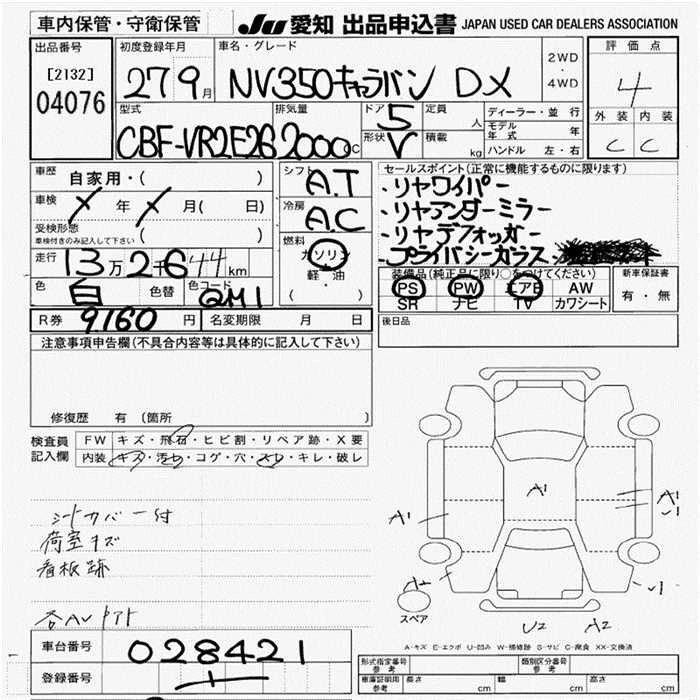 車内保管・守衛保管
JU 愛知 出品申込書 JAPAN USED CAR DEALERS ASSOCIATION
出品番号
[2132]
04076
初度登録年月
27 9月
車名・グレード
NV350キャラバン DX
2WD
・
4WD
評価点
4
外装 内装
C C
型式
CBF-VR2E26
排気量
2000CC
ドア
5
形状
V
定員
人
積載
kg
ディーラー・並行
モデル年式 年
ハンドル 左・右
車歴
自家用・( )
車検
年 月( 日)
受検形態
車検付きのみ記入して下さい ( )
走行
13万2千644km
色
白
色替
色コード
QM1
シフト
A.T
冷房
A.C
燃料
ガソリン
軽・油
( )
セールスポイント(正常に機能するものに限ります)
・リヤワイパー
・リヤアンダーミラー
・リヤデフォッガー
・プライバシーガラス
装備品(純正品に限り○をつけてください)
PS PW エアB AW
SR ナビ TV カワシート
新車保証書
有・無
R券 9,160円
名変期限 月 日
後日品
注意事項申告欄(不具合内容等は具体的に記入して下さい)
修復歴 有(箇所 )
検査員記入欄
FW キズ・飛石・ヒビ割・リペア跡・X要
内装 キズ・汚れ・コゲ・穴・スレ・キレ・破レ
シートカバー付
荷室キズ
看板跡
A1
A1
A1
A2
U2 A2
スペア
A-キズ E-エクボ U-凹み W-補修跡 S-サビ C-腐食 XX-交換済
車台番号
028421
登録番号
形式指定番号
参考
類別区分番号
参考
車庫証明用
参考
長さ cm
幅 cm
高さ cm